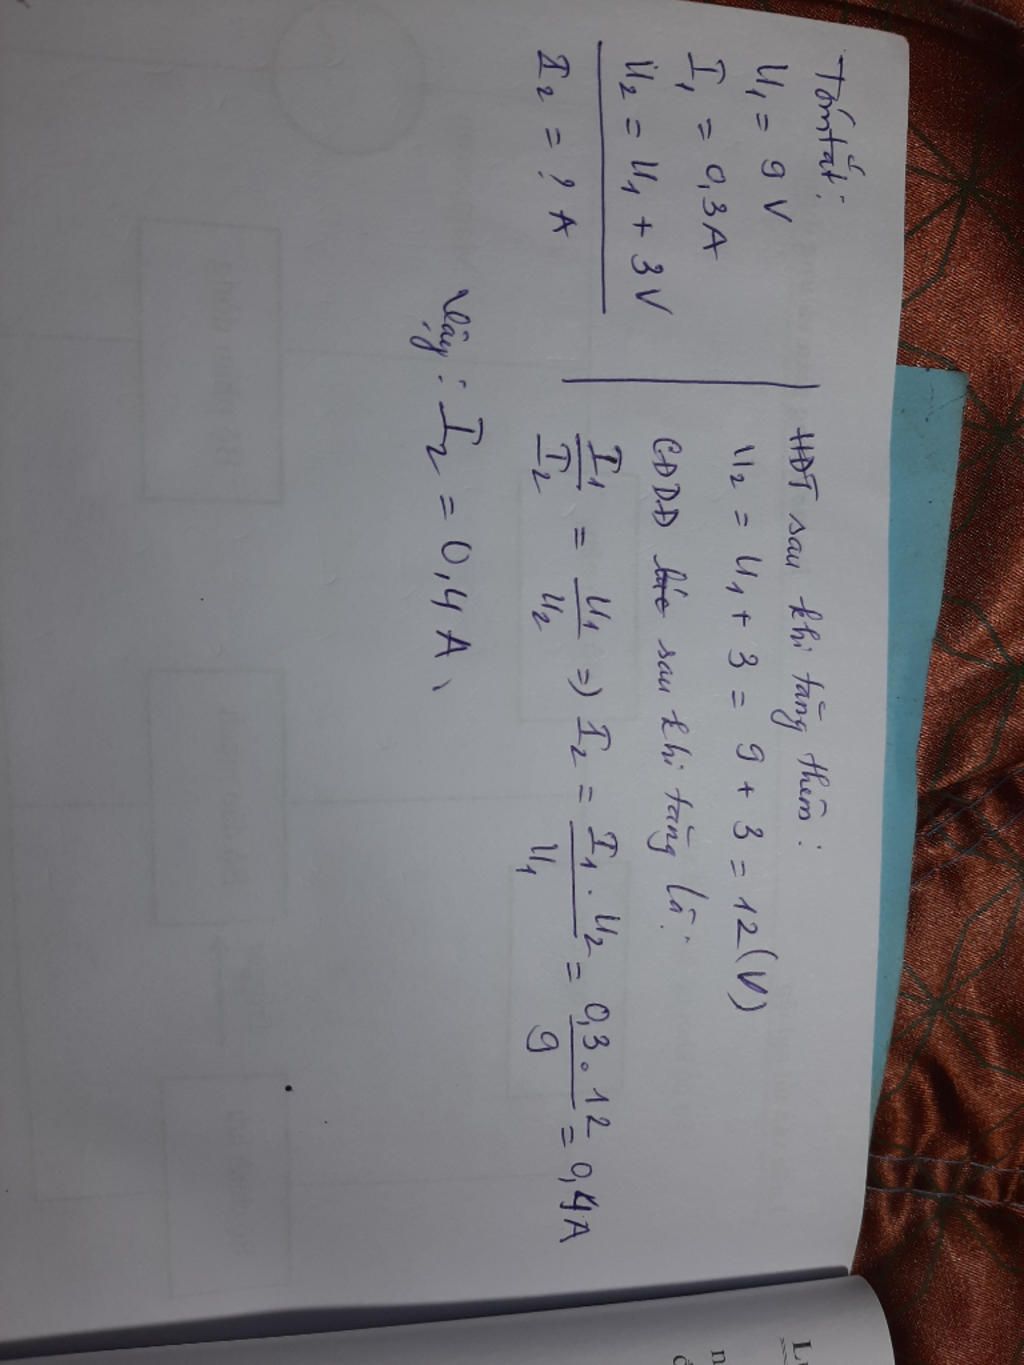 Tóm tắt:
U1 = 9 V
I1 = 0,3A
U2 = U1 + 3V
I2 = ? A
HĐT sau khi tăng thêm:
U2 = U1 + 3 = 9 + 3 = 12 (V)
CĐDĐ sau khi tăng là:
I1/I2 = U1/U2 => I2 = I1 . U2/U1 = 0,3 . 12/9 = 0,4A
Vậy: I2 = 0,4 A